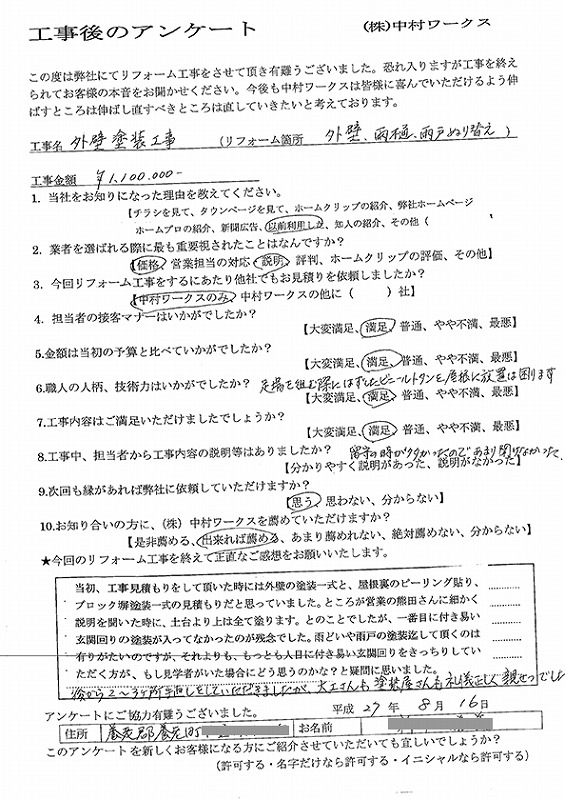 工事後のアンケート (株)中村ワークス
この度は弊社にてリフォーム工事をさせて頂き有難うございました。恐れ入りますが工事を終え
られてお客様の本音をお聞かせください。今後も中村ワークスは皆様に喜んでいただけるよう伸
ばすところは伸ばし直すべきところは直していきたいと考えております。
工事名 外壁塗装工事 (リフォーム箇所 外壁、雨樋、雨戸ぬり替え)
工事金額 ¥1,100.000-
1. 当社をお知りになった理由を教えてください。
【チラシを見て、タウンページを見て、ホームクリップの紹介、弊社ホームページ
ホームプロの紹介、新聞広告、以前利用した、知人の紹介、その他(
2. 業者を選ばれる際に最も重要視されたことはなんですか?
【価格、営業担当の対応、説明、評判、ホームクリップの評価、その他】
3. 今回リフォーム工事をするにあたり他社でもお見積りを依頼しましたか?
【中村ワークスのみ、中村ワークスの他に( )社】
4. 担当者の接客マナーはいかがでしたか?
【大変満足、満足、普通、やや不満、最悪】
5.金額は当初の予算と比べていかがでしたか?
【大変満足、満足、普通、やや不満、最悪】
6.職人の人柄、技術力はいかがでしたか? 足場を組む際にはずしたビニールトタンを屋根に放置は困ります
【大変満足、満足、普通、やや不満、最悪】
7.工事内容はご満足いただけましたでしょうか?
【大変満足、満足、普通、やや不満、最悪】
8.工事中、担当者から工事内容の説明等はありましたか? 留守の時が多かったのであまり聞けなかった
【分かりやすく説明があった、説明がなかった】
9.次回も縁があれば弊社に依頼していただけますか?
【思う、思わない、分からない】
10.お知り合いの方に、(株)中村ワークスを薦めていただけますか?
【是非薦める、出来れば薦める、あまり薦めれない、絶対薦めない、分からない】
★今回のリフォーム工事を終えて正直なご感想をお願いいたします。
当初、工事見積もりをして頂いた時には外壁の塗装一式と、屋根裏のピーリング貼り、
ブロック塀塗装一式の見積もりだと思っていました。ところが営業の熊田さんに細かく
説明を聞いた時に、土台より上は全て塗ります。とのことでしたが、一番目に付き易い
玄関回りの塗装が入ってなかったのが残念でした。雨どいや雨戸の塗装迄して頂くのは
有りがたいのですが、それよりも、もっとも人目に付き易い玄関回りをきっちりしてい
ただく方が、もし見学者がいた場合にどう思うのかな?と疑問に思いました。
後から2~3ヶ所手直しをしていただきましたが、大工さんも塗装屋さんも礼義正しく親せつでした
アンケートにご協力有難うございました。 平成 27年 8月 16日
住所 養老郡養老町 お名前
このアンケートを新しくお客様になる方にご紹介させていただいても宜しいでしょうか?
(許可する・名字だけなら許可する・イニシャルなら許可する)